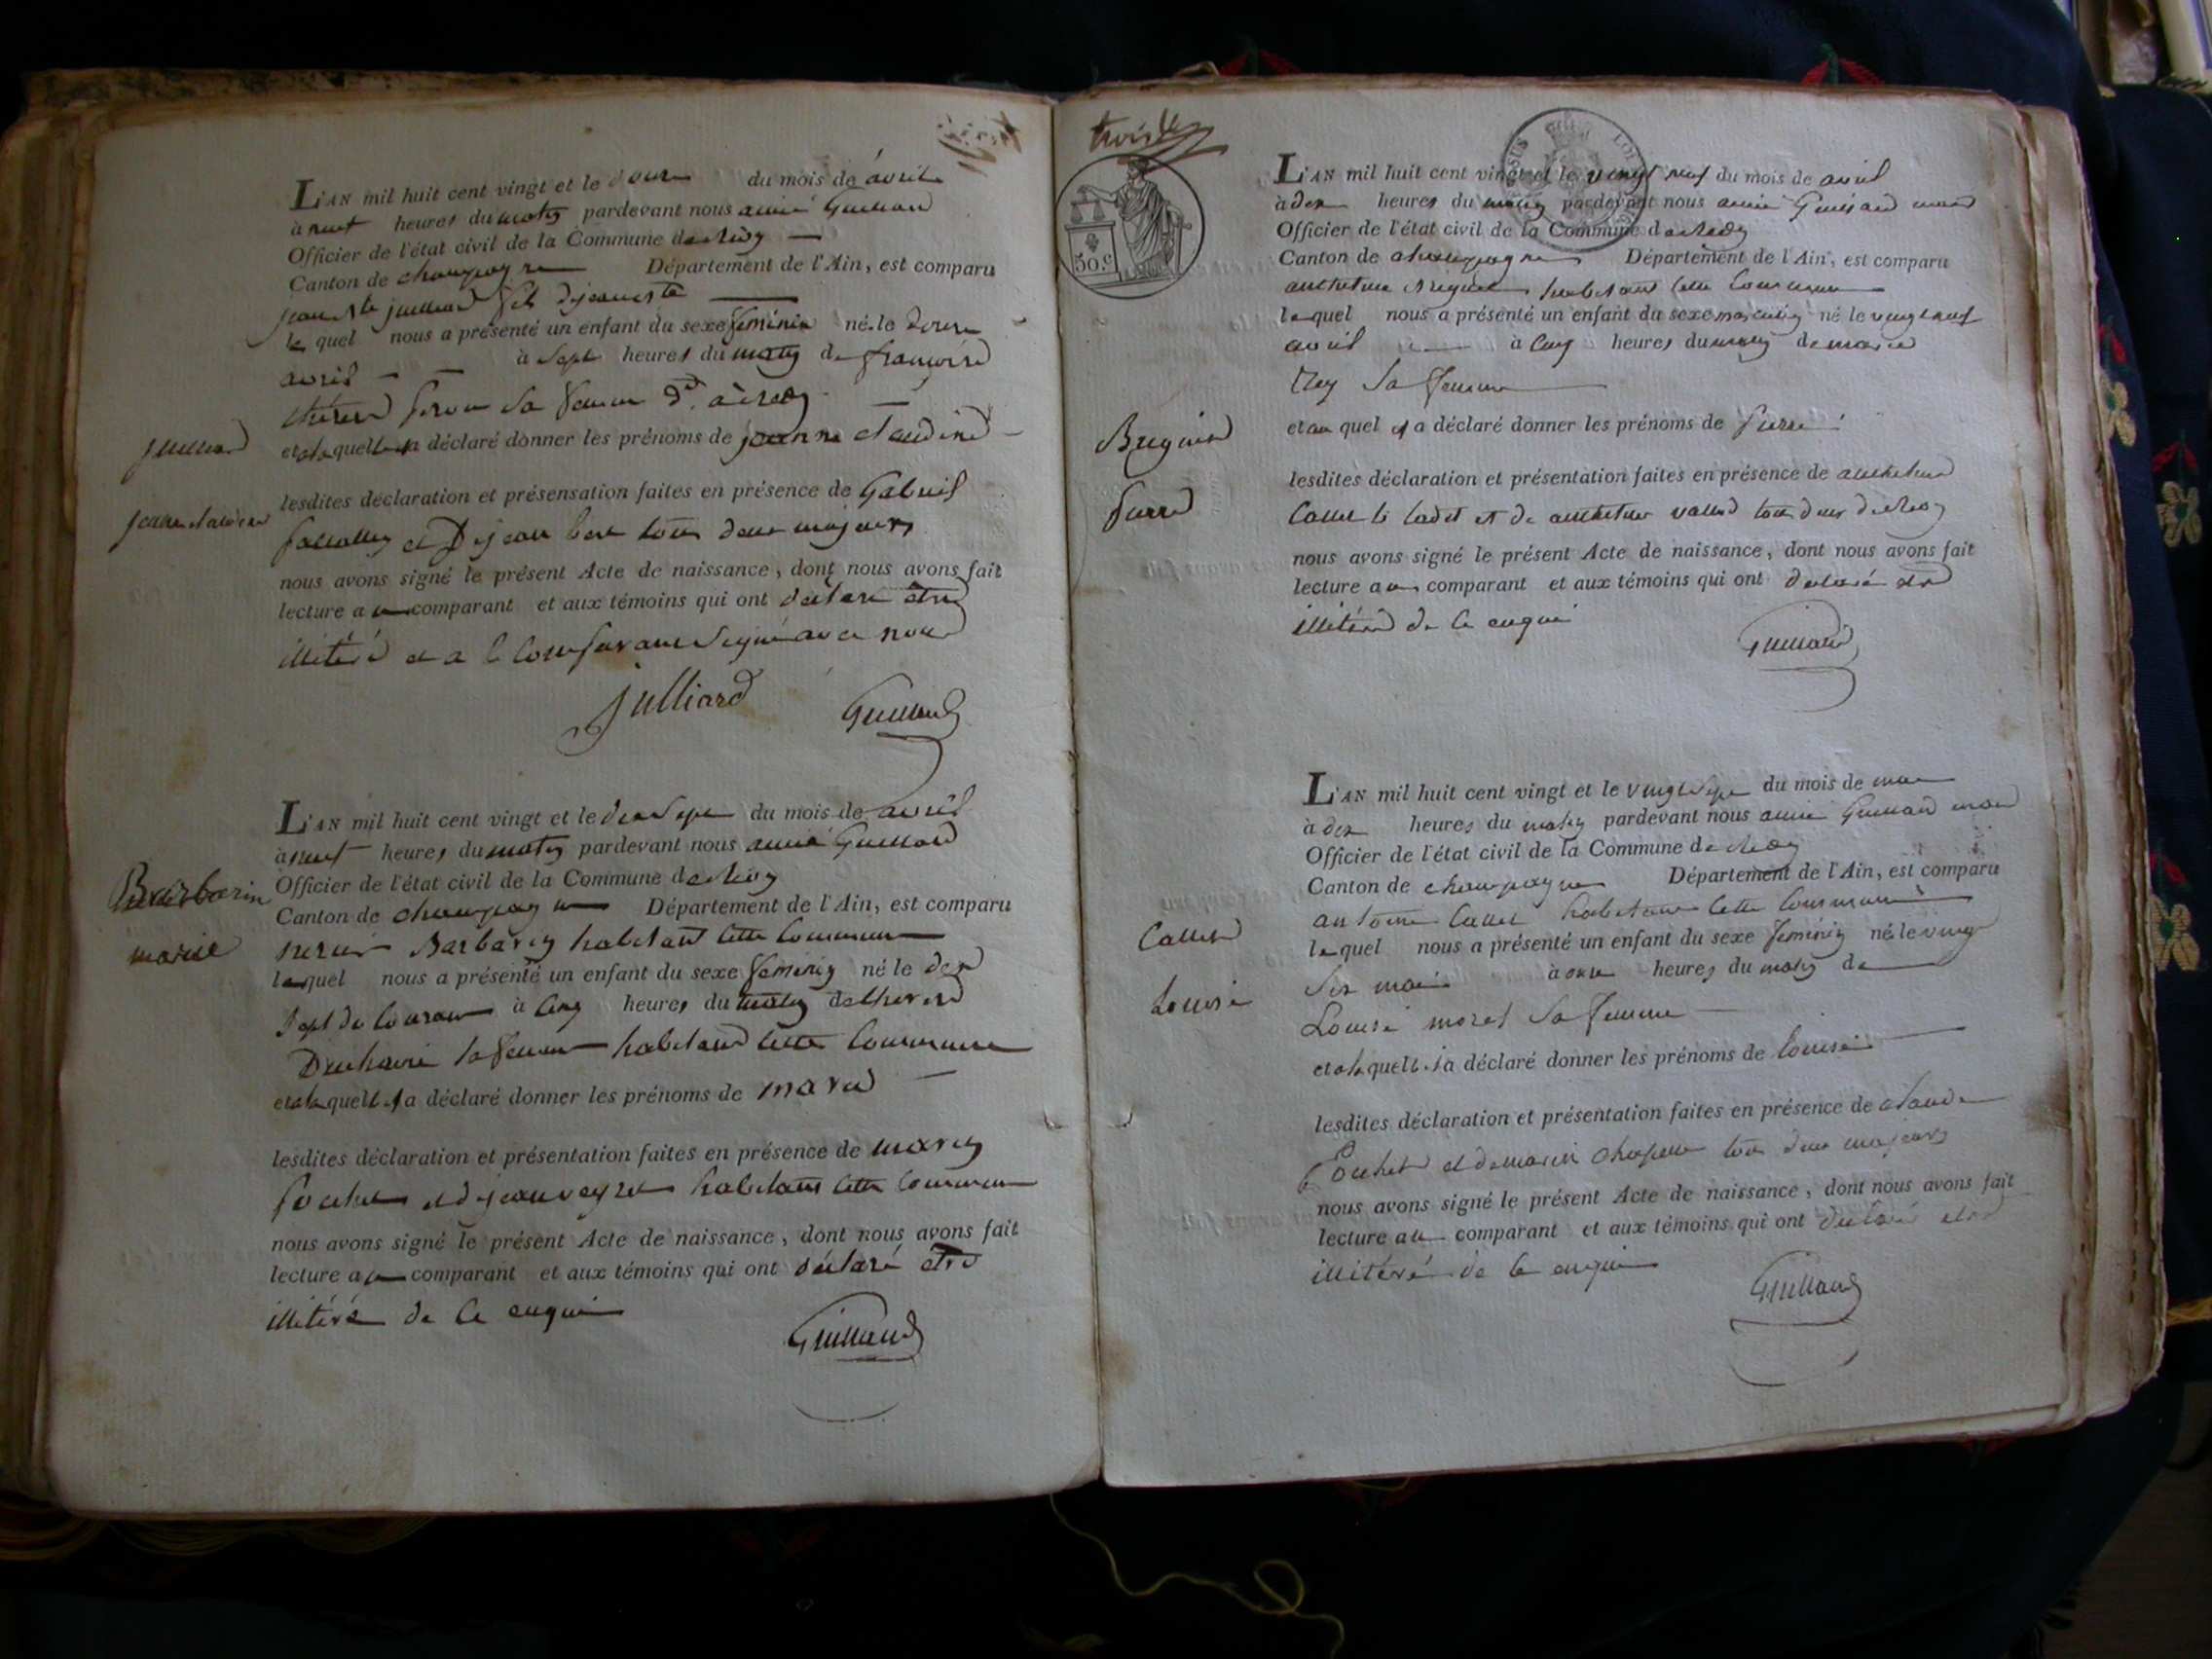 L'AN mil huit cent vingt et le douze du mois de avril
à neuf heures du matin pardevant nous aimé Guilland
Officier de l'état civil de la Commune de
Canton de champagne Département de l'Ain, est comparu
jean bte juilliard fils de jean bte
le quel nous a présenté un enfant du sexe féminin né le douze
avril à sept heures du matin de françoise
sa femme
et a la quelle il a déclaré donner les prénoms de jeanne claudine
juilliard
lesdites déclaration et présensation faites en présence de Gabriel
jeanne claudine
et De jean tous deux majeurs
nous avons signé le présent Acte de naissance, dont nous avons fait
lecture au comparant et aux témoins qui ont déclaré être
illitéré et a le comparant signé avec nous
Julliard Guilland
L'AN mil huit cent vingt et le dix sept du mois de avril
à neuf heures du matin pardevant nous aimé Guilland
Barbarin
Officier de l'état civil de la Commune de
Canton de champagne Département de l'Ain, est comparu
marie
Barbarin habitant cette commune
lequel nous a présenté un enfant du sexe féminin né le dix
sept du courant à cinq heures du matin de
sa femme habitant cette commune
et a la quelle il a déclaré donner les prénoms de marie
lesdites déclaration et présentation faites en présence de marin
et de jean habitans cette commune
nous avons signé le présent Acte de naissance, dont nous avons fait
lecture au comparant et aux témoins qui ont déclaré être
illitéré de ce enquis
Guilland
trois
50.c
L'AN mil huit cent vingt et le vingt neuf du mois de avril
à dix heures du matin pardevant nous aimé Guilland maire
Officier de l'état civil de la Commune de
Canton de champagne Département de l'Ain, est comparu
anthelme habitant cette commune
lequel nous a présenté un enfant du sexe masculin né le vingt neuf
avril à cinq heures du matin de marie
Rey sa femme
et au quel il a déclaré donner les prénoms de Pierre
Pierre
lesdites déclaration et présentation faites en présence de anthelme
Callet le cadet et de anthelme tous deux de
nous avons signé le présent Acte de naissance, dont nous avons fait
lecture au comparant et aux témoins qui ont déclaré être
illitéré de ce enquis
Guilland
L'AN mil huit cent vingt et le vingt sept du mois de mai
à dix heures du matin pardevant nous aimé Guilland maire
Officier de l'état civil de la Commune de
Canton de champagne Département de l'Ain, est comparu
antoine Callet habitant cette commune
Callet
lequel nous a présenté un enfant du sexe féminin né le vingt
six mai à onze heures du matin de
Louise
Louise moret sa femme
et a la quelle il a déclaré donner les prénoms de louise
lesdites déclaration et présentation faites en présence de claude
et de marin tous deux majeurs
nous avons signé le présent Acte de naissance, dont nous avons fait
lecture au comparant et aux témoins qui ont déclaré être
illitéré de ce enquis
Guilland